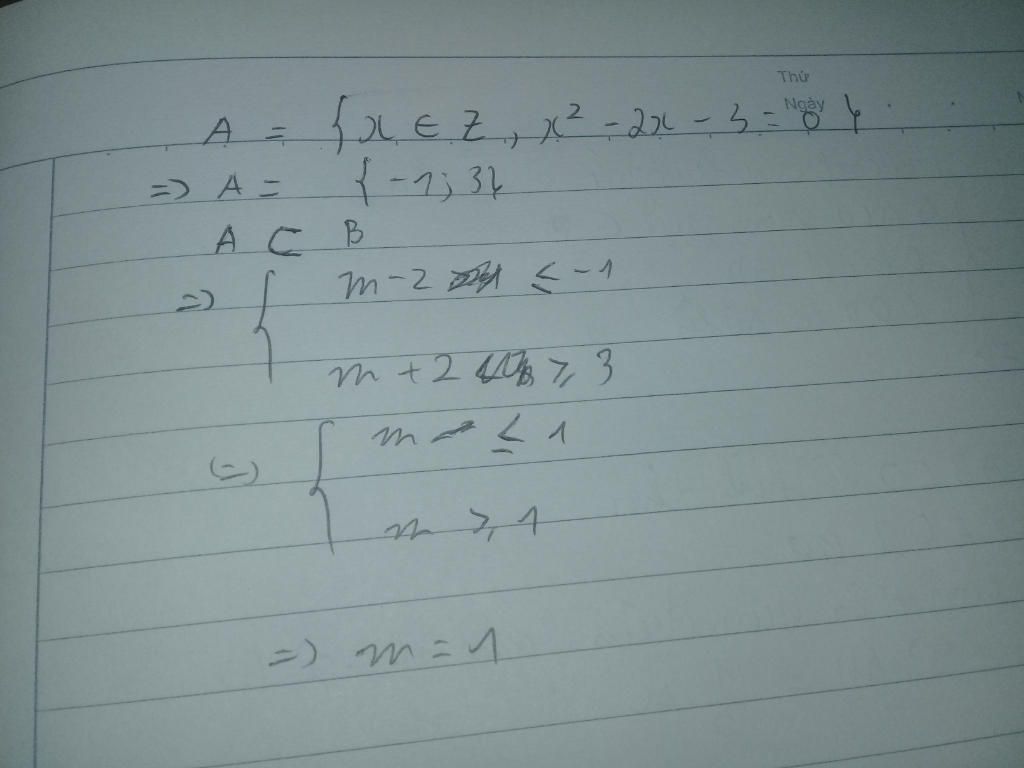 Thứ
Ngày
A = {x ∈ Z, x² - 2x - 3 = 0}
=> A = {-1; 3}
A ⊂ B
=> { m - 2 ≤ -1
m + 2 ≥ 3
(=) { m ≤ 1
m ≥ 1
=> m = 1